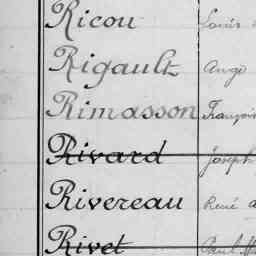 Ricou Louis
Rigault Ange
Rimasson François
Rivard Joseph
Rivereau René
Rivet Paul